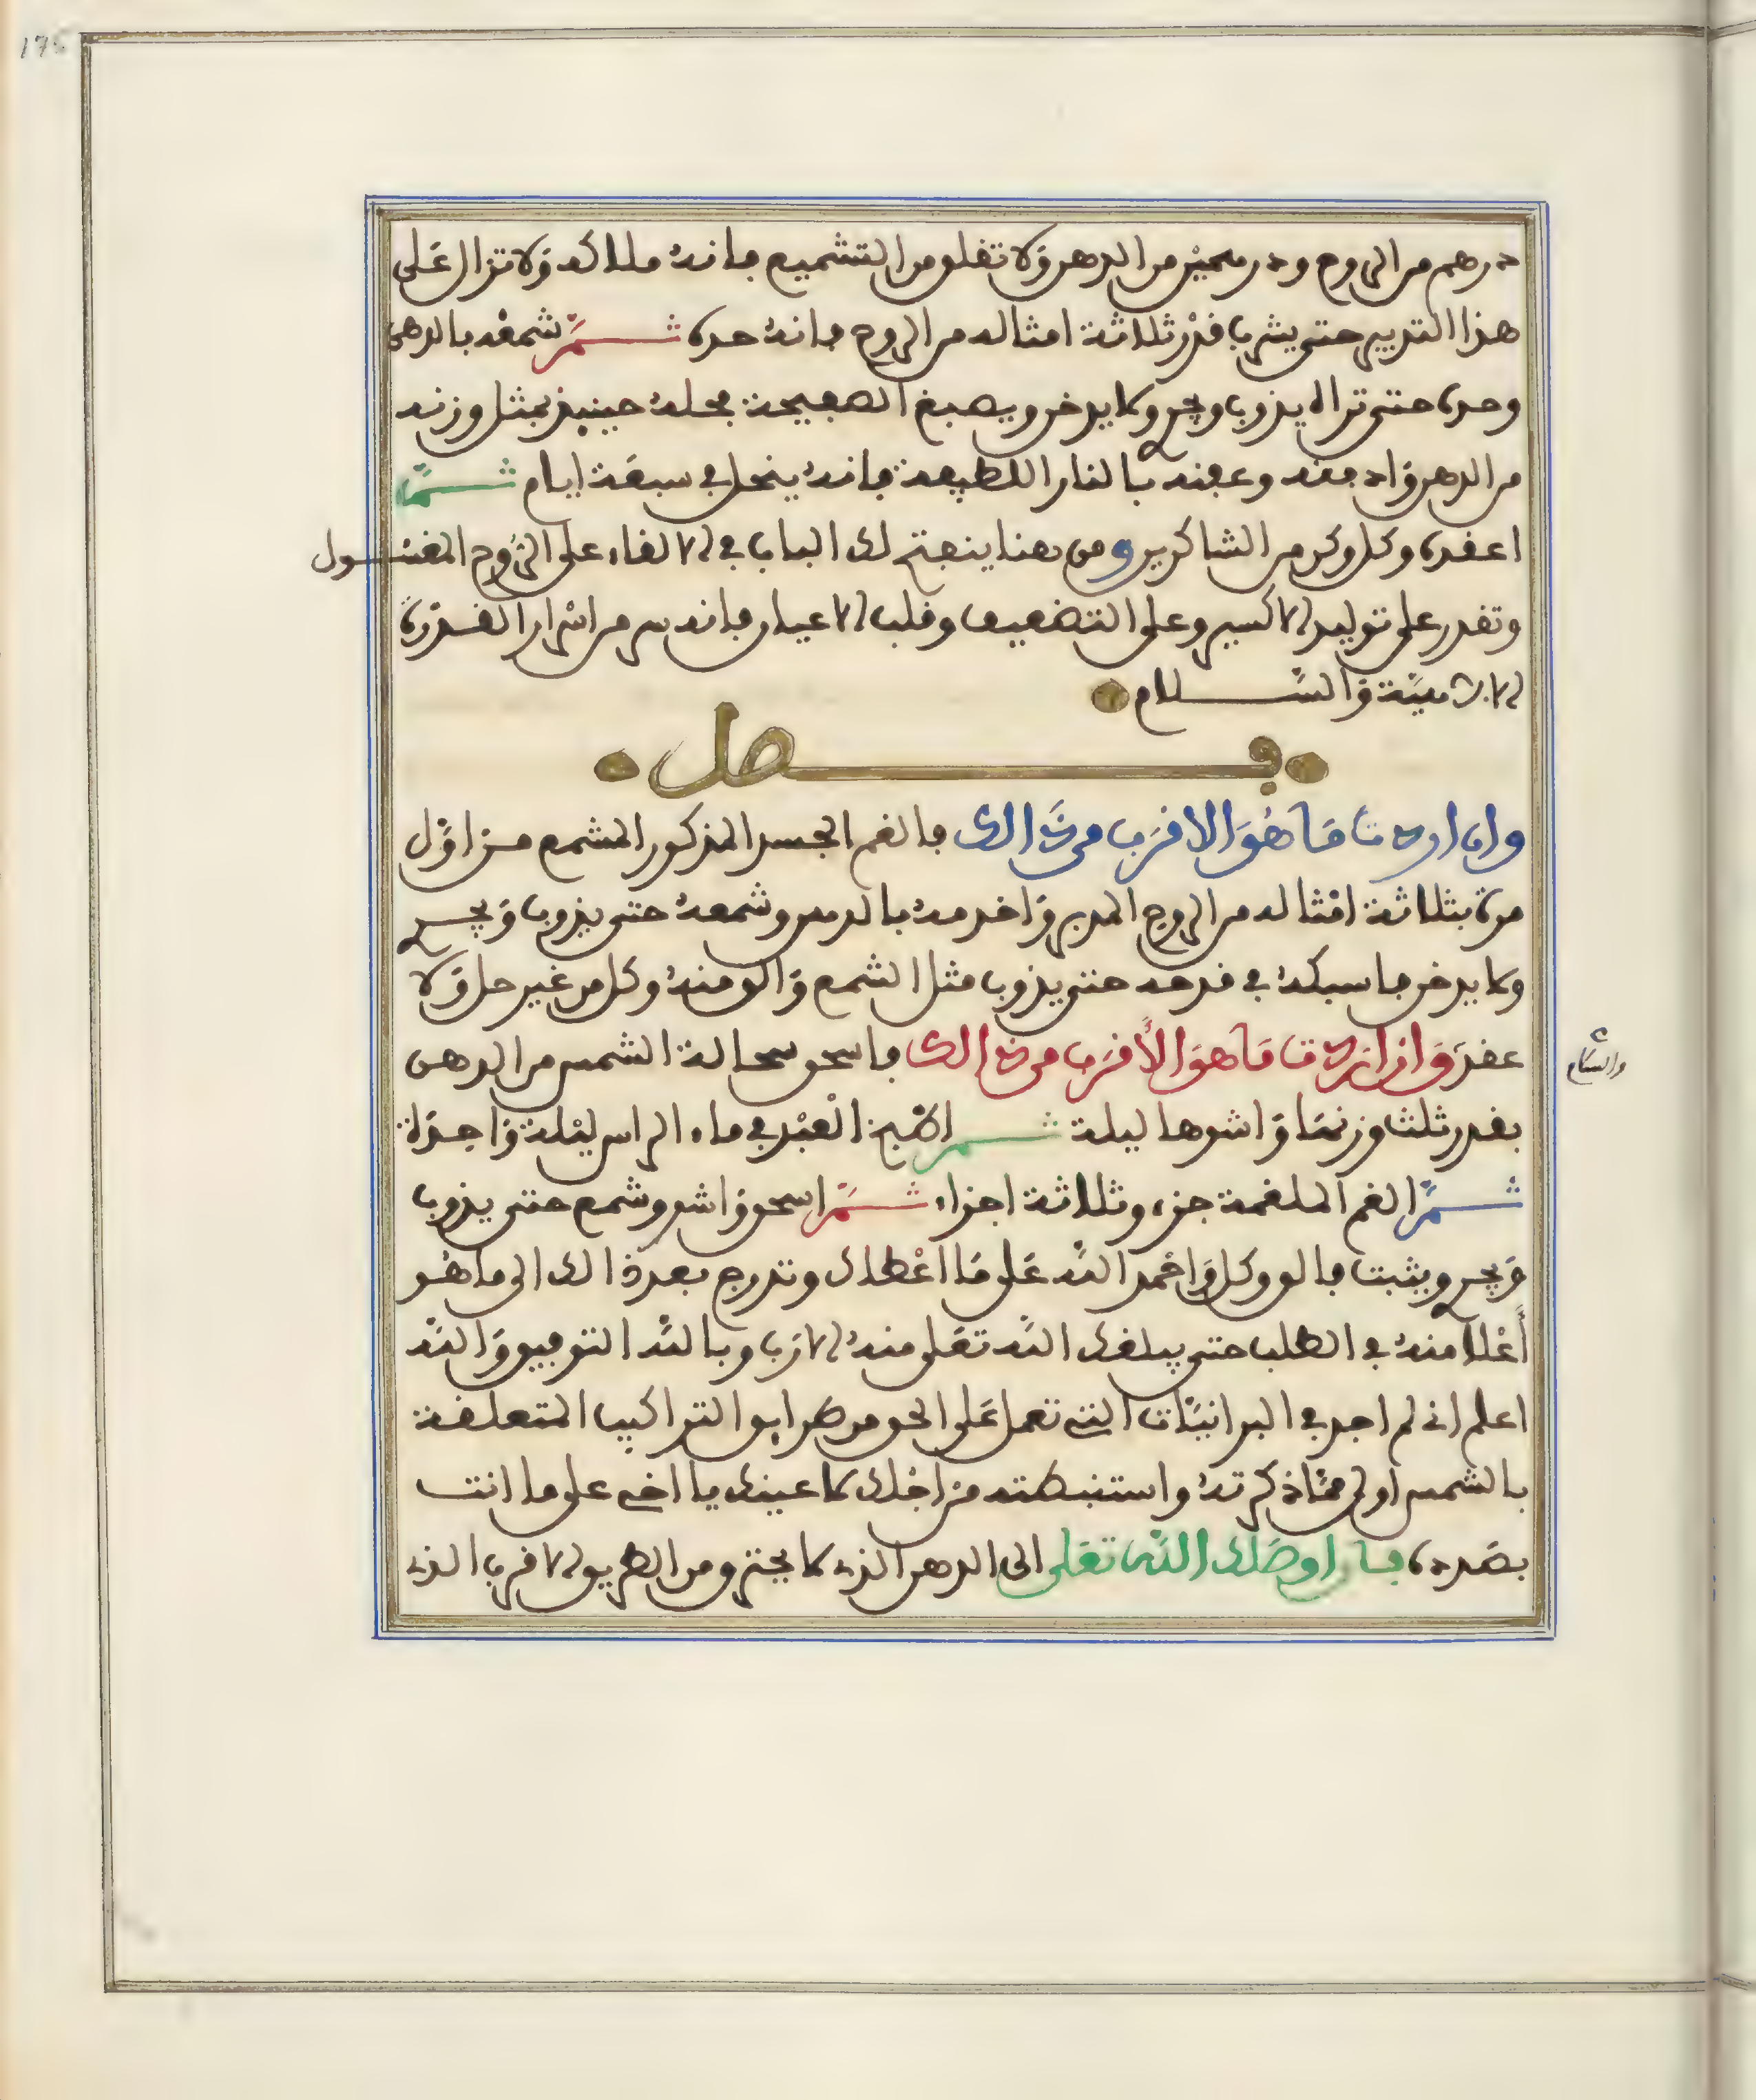 175
درهم من الروح ودرهمين من الدهن ولا تقلق من التشميع فانه ملاكه ولا تزال على
هذا التدبير حتى يشرب قدر ثلاثة امثاله من الروح فانه حده ثم شمعه بالدهن
وحده حتى تراه يذوب ويجري ولا يدخن ويصبغ الصفيحة فحله حينيذ بمثل وزنه
من الدهن وادفنه وعفنه بالنار اللطيفة فانه ينحل في سبعة ايام ثم
اعقده وكل وكن من الشاكرين ومن هنا ينفتح لك الباب في الالقاء على الروح المغسول
وتقدر على توليد الاكسير وعلى التضعيف وقلب الاعيان فانه سر من اسرار القدرة
الالهية والسلام
فصل
وان اردت ما هو الاقرب من ذالك فالغم الجسد المذكور المشمع من اول
مرة بثلاثة امثاله من الروح المدبر واخدمه بالدهن وشمعه حتى يذوب ويجري
ولا يدخن فاسبكه في قدحه حتى يذوب مثل الشمع والق منه وكل من غير حل ولا
عقد وان اردت ما هو الأقرب من ذالك فاسحق سحالة الشمس من الدهن
والسلام
بقدر ثلث وزنها واشوها ليلة ثم اطبخ العبد في ماء الراس ليلة واحدة
ثم الغم الملغمة جزء وثلاثة اجزاء ثم اسحق واشو وشمع حتى يذوب
ويجري ويثبت فالق وكل واحمد الله على ما اعطاك وتدرج بعد ذالك الى ما هو
أعلا منه في الطلب حتى يبلغك الله تعلى منه الارب وبالله التوفيق والله
اعلم اني لم اجد في البرانيات التي تعمل على الحق من طرايق التراكيب المتعلقة
بالشمس اولى مما ذكرته واستنبطته من اجلك لاعينك يا اخي على ما انت
بصدده فان اوصلك الله تعلى الى الدهن الذي لا يحترق ومن الطريق الاقرب الذي